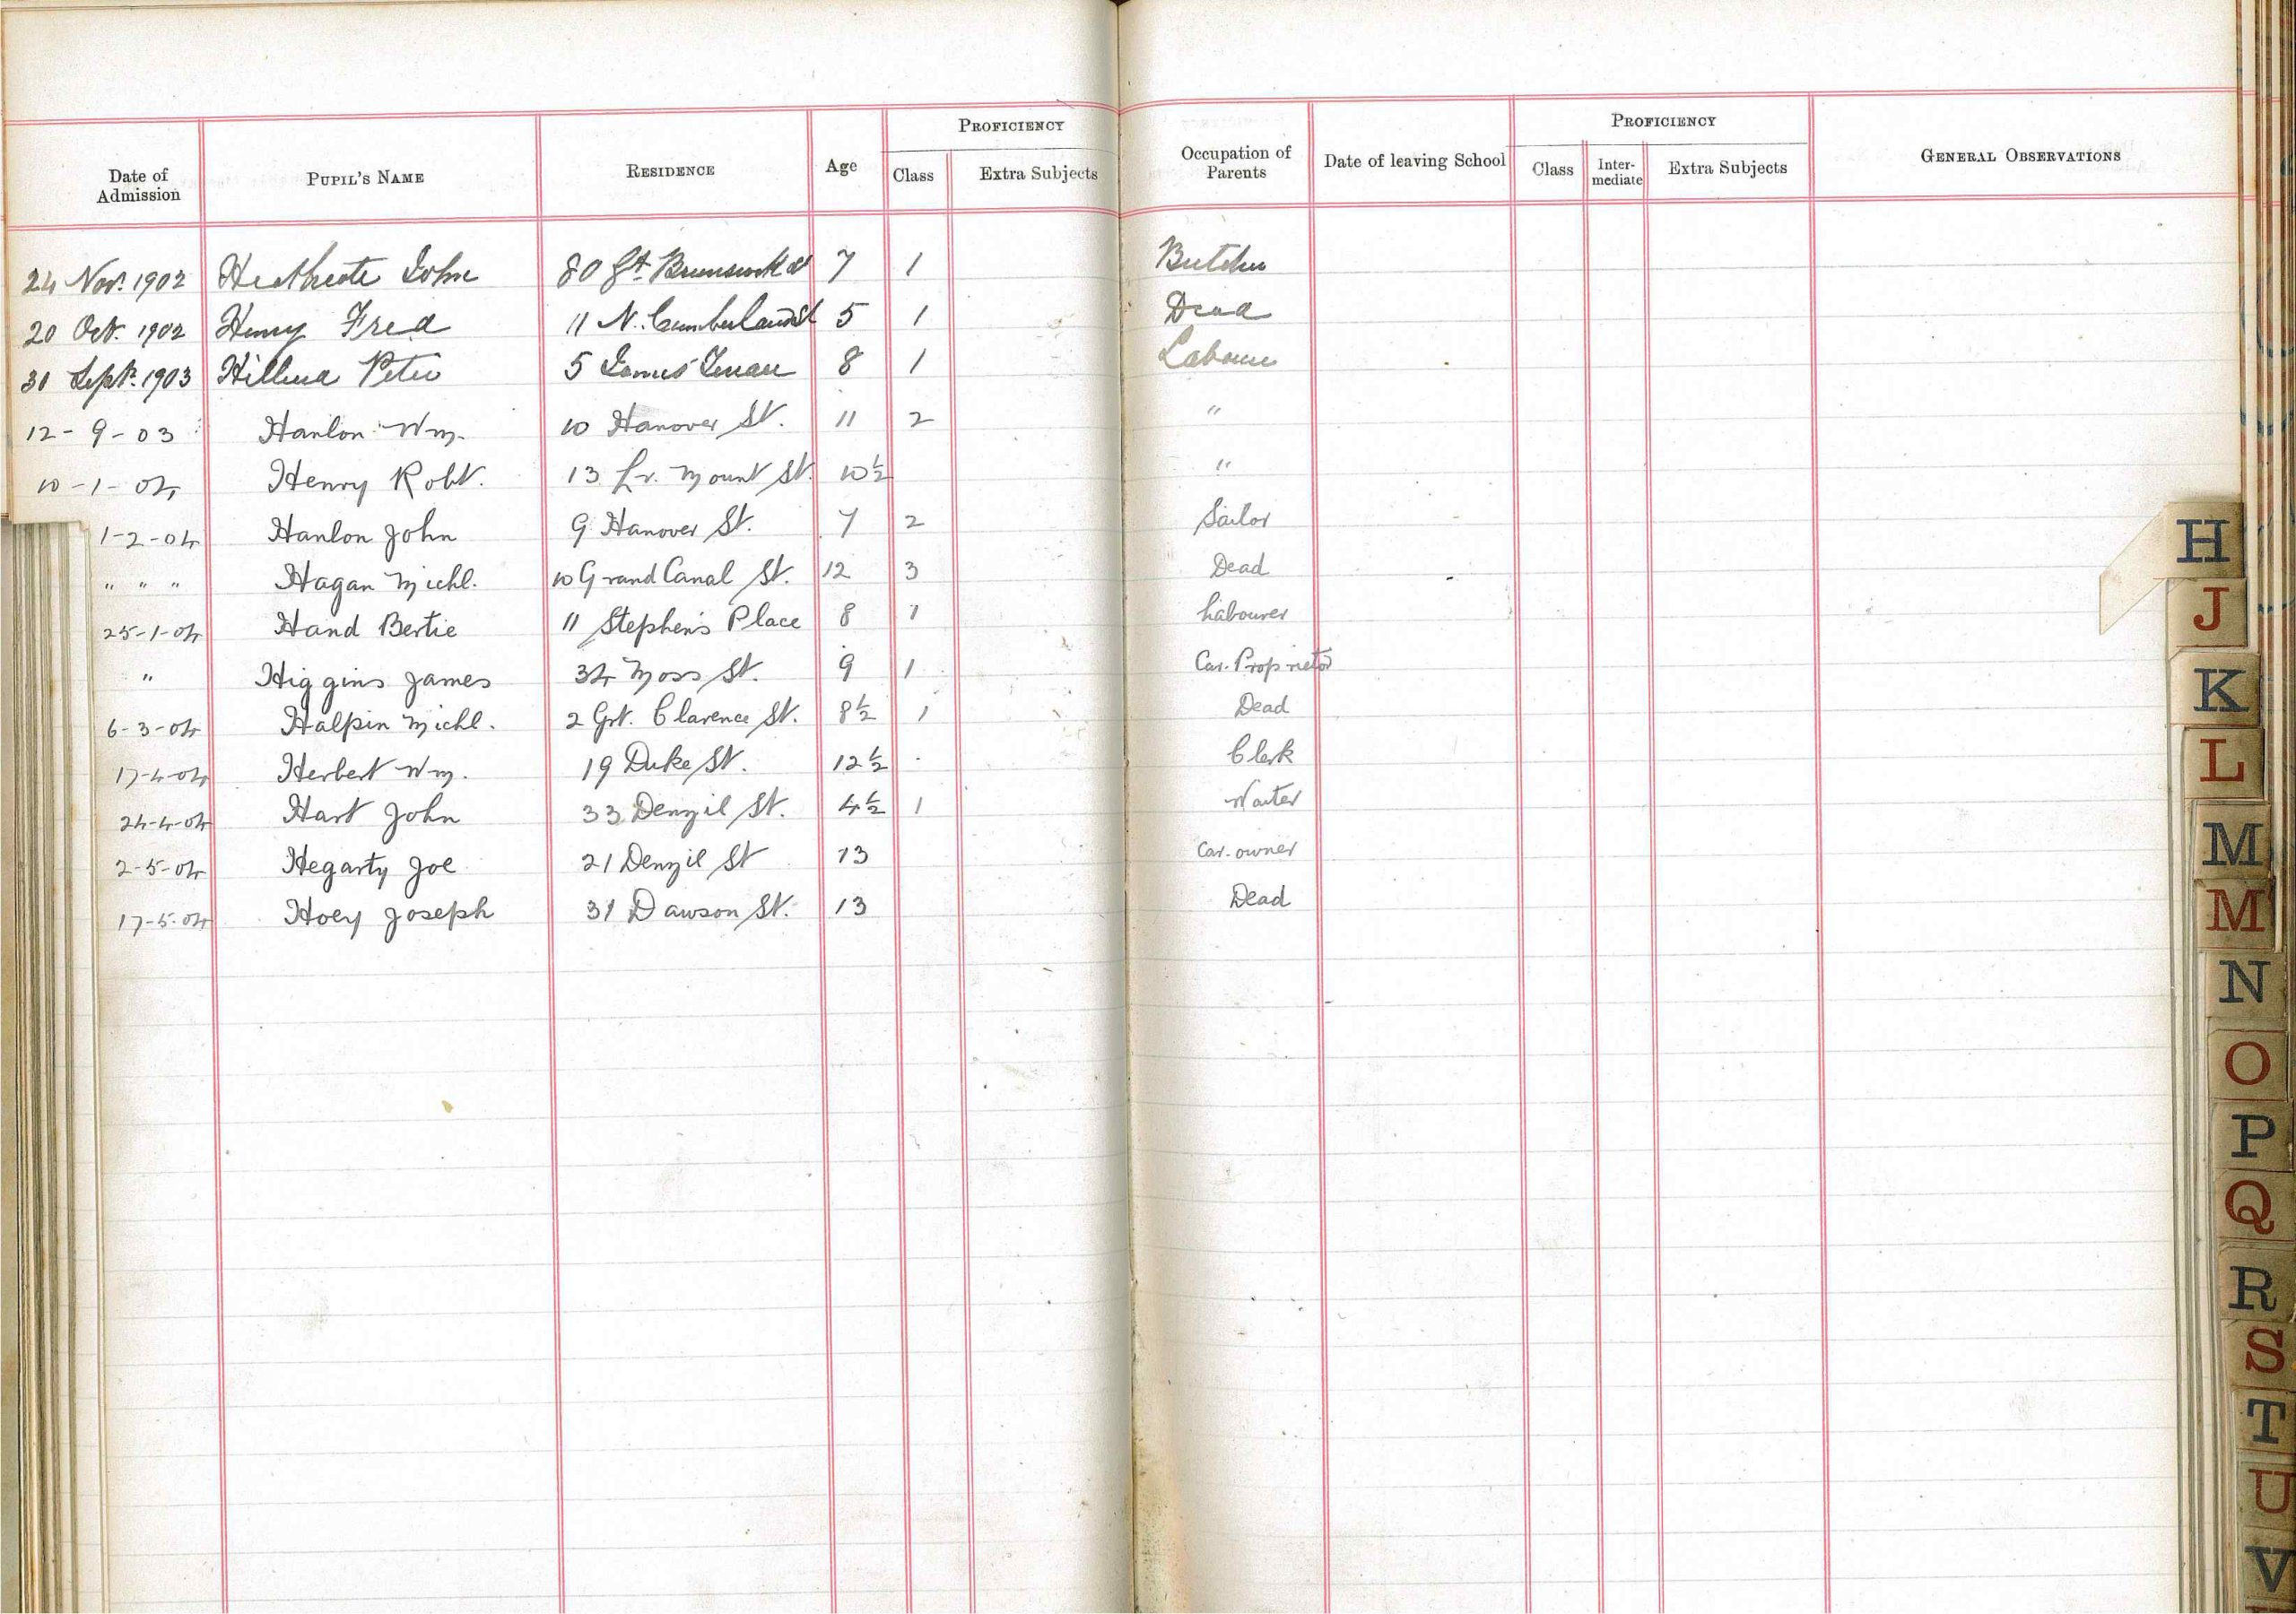 PROFICIENCY
Date of Admission PUPIL'S NAME RESIDENCE Age Class Extra Subjects
PROFICIENCY
Occupation of Parents Date of leaving School Class Inter-mediate Extra Subjects GENERAL OBSERVATIONS
24 Nov. 1902 Heathcote John 80 Gt. Brunswick St 7 1 Butcher
20 Oct. 1902 Henry Fred 11 N. Cumberland St 5 1 Dead
31 Sept. 1903 Peter 5 James' Terrace 8 1 Labourer
12-9-03 Hanlon Wm. 10 Hanover St. 11 2 "
10-1-04 Henry Robt. 13 Lr. Mount St. 10½ "
1-2-04 Hanlon John 9 Hanover St. 7 2 Sailor
" " " Hagan Michl. 10 Grand Canal St. 12 3 Dead
25-1-04 Hand Bertie 11 Stephen's Place 8 1 Labourer
" Higgins James 34 Moss St. 9 1 Car. Proprietor
6-3-04 Halpin Michl. 2 Grt. Clarence St. 8½ 1 Dead
17-4-04 Herbert Wm. 19 Duke St. 12½ Clerk
24-4-04 Hart John 33 Denzil St. 4½ 1 Waiter
2-5-04 Hegarty Joe 21 Denzil St 13 Car. owner
17-5-04 Hoey Joseph 31 Dawson St. 13 Dead
H
J
K
L
M
M
N
O
P
Q
R
S
T
U
V